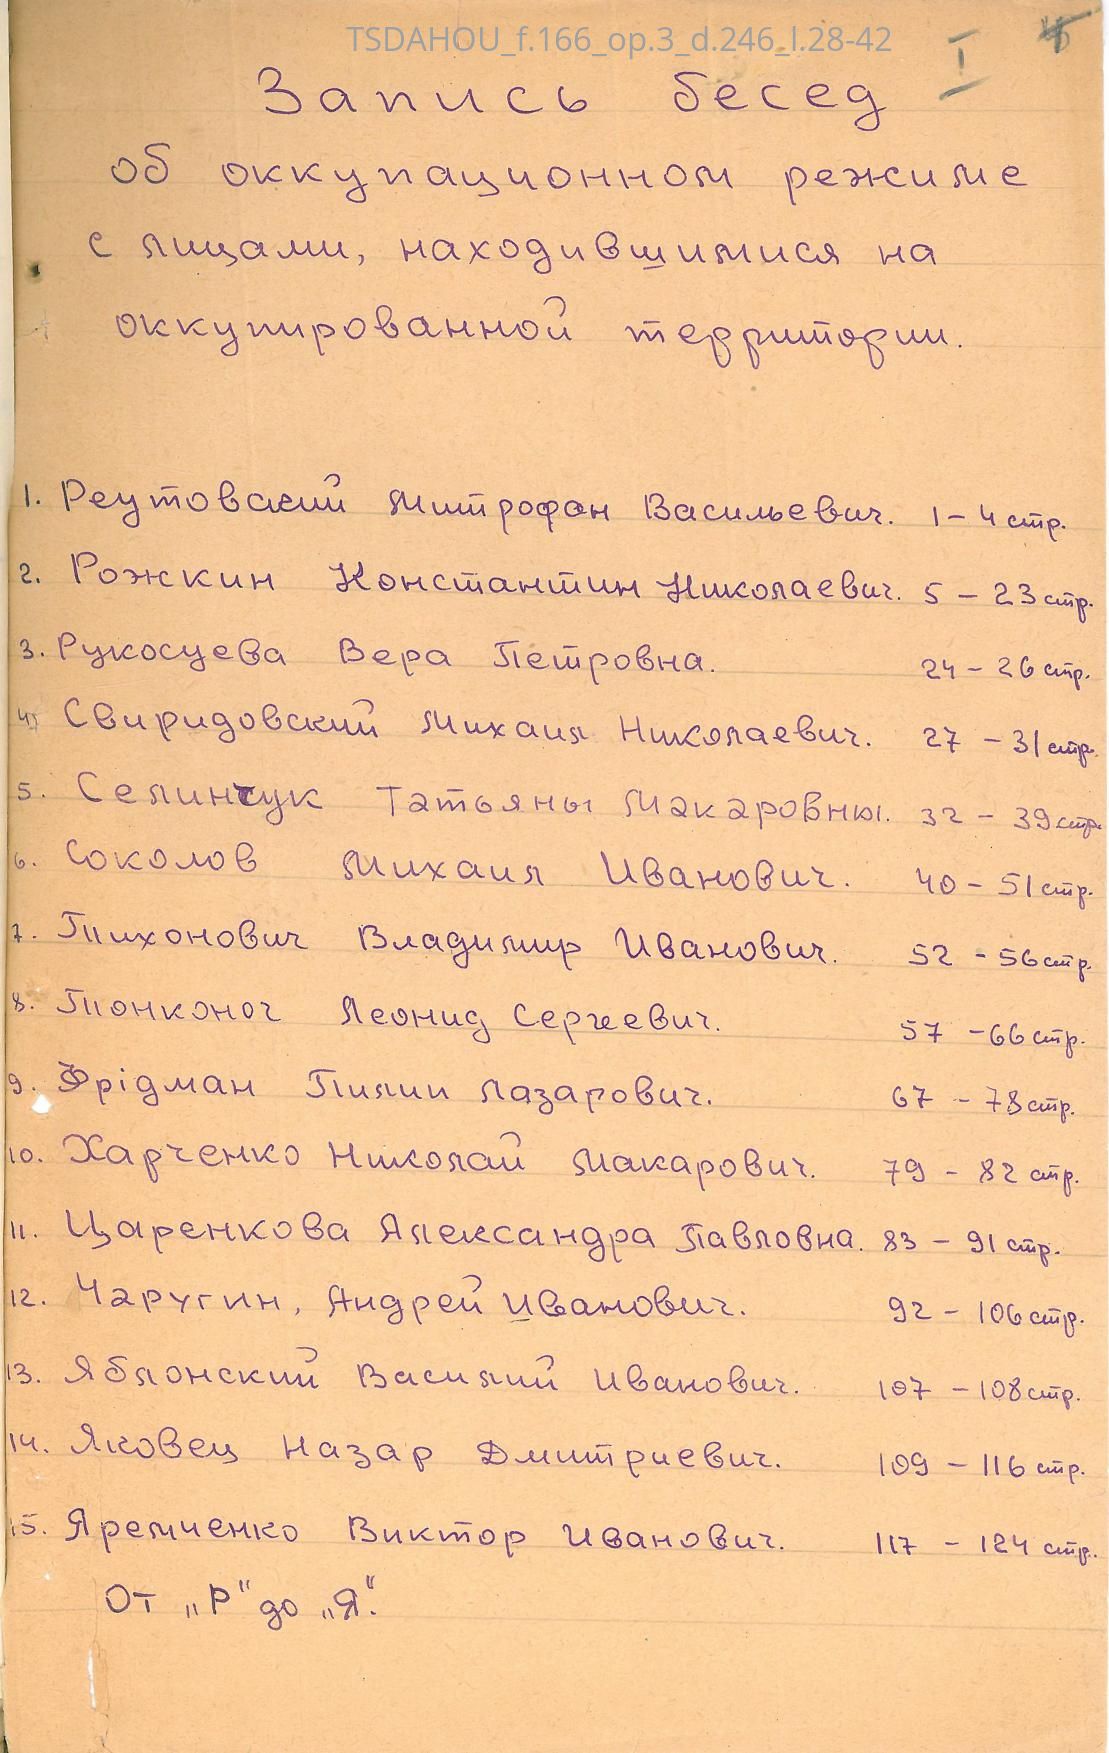 TSDAHOU_f.166_op.3_d.246_l.28-42
I
Запись бесед
об оккупационном режиме
с лицами, находившимися на
оккупированной территории.
1. Реутовский Митрофан Васильевич. 1 – 4 стр.
2. Рожкин Константин Николаевич. 5 – 23 стр.
3. Рукосуева Вера Петровна. 24 – 26 стр.
4. Свиридовский Михаил Николаевич. 27 – 31 стр.
5. Селинчук Татьяны Макаровны. 32 – 39 стр.
6. Соколов Михаил Иванович. 40 – 51 стр.
7. Тихонович Владимир Иванович. 52 – 56 стр.
8. Тонконог Леонид Сергеевич. 57 – 66 стр.
9. Фрідман Пилип Лазарович. 67 – 78 стр.
10. Харченко Николай Макарович. 79 – 82 стр.
11. Царенкова Александра Павловна. 83 – 91 стр.
12. Чаругин, Андрей Иванович. 92 – 106 стр.
13. Яблонский Василий Иванович. 107 – 108 стр.
14. Яковец Назар Дмитриевич. 109 – 116 стр.
15. Яремченко Виктор Иванович. 117 – 124 стр.
От „Р" до „Я".